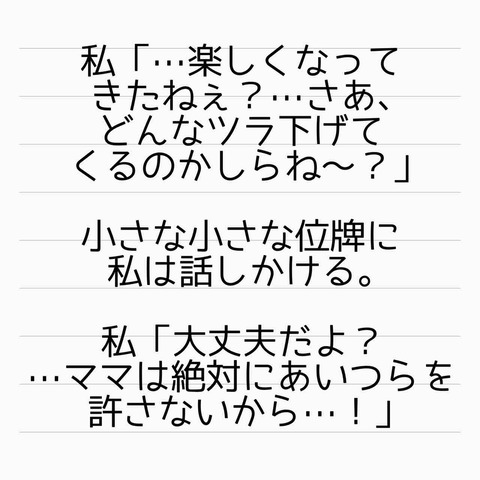 私「…楽しくなって
きたねぇ？…さあ、
どんなツラ下げて
くるのかしらね〜？」
小さな小さな位牌に
私は話しかける。
私「大丈夫だよ？
…ママは絶対にあいつらを
許さないから…！」